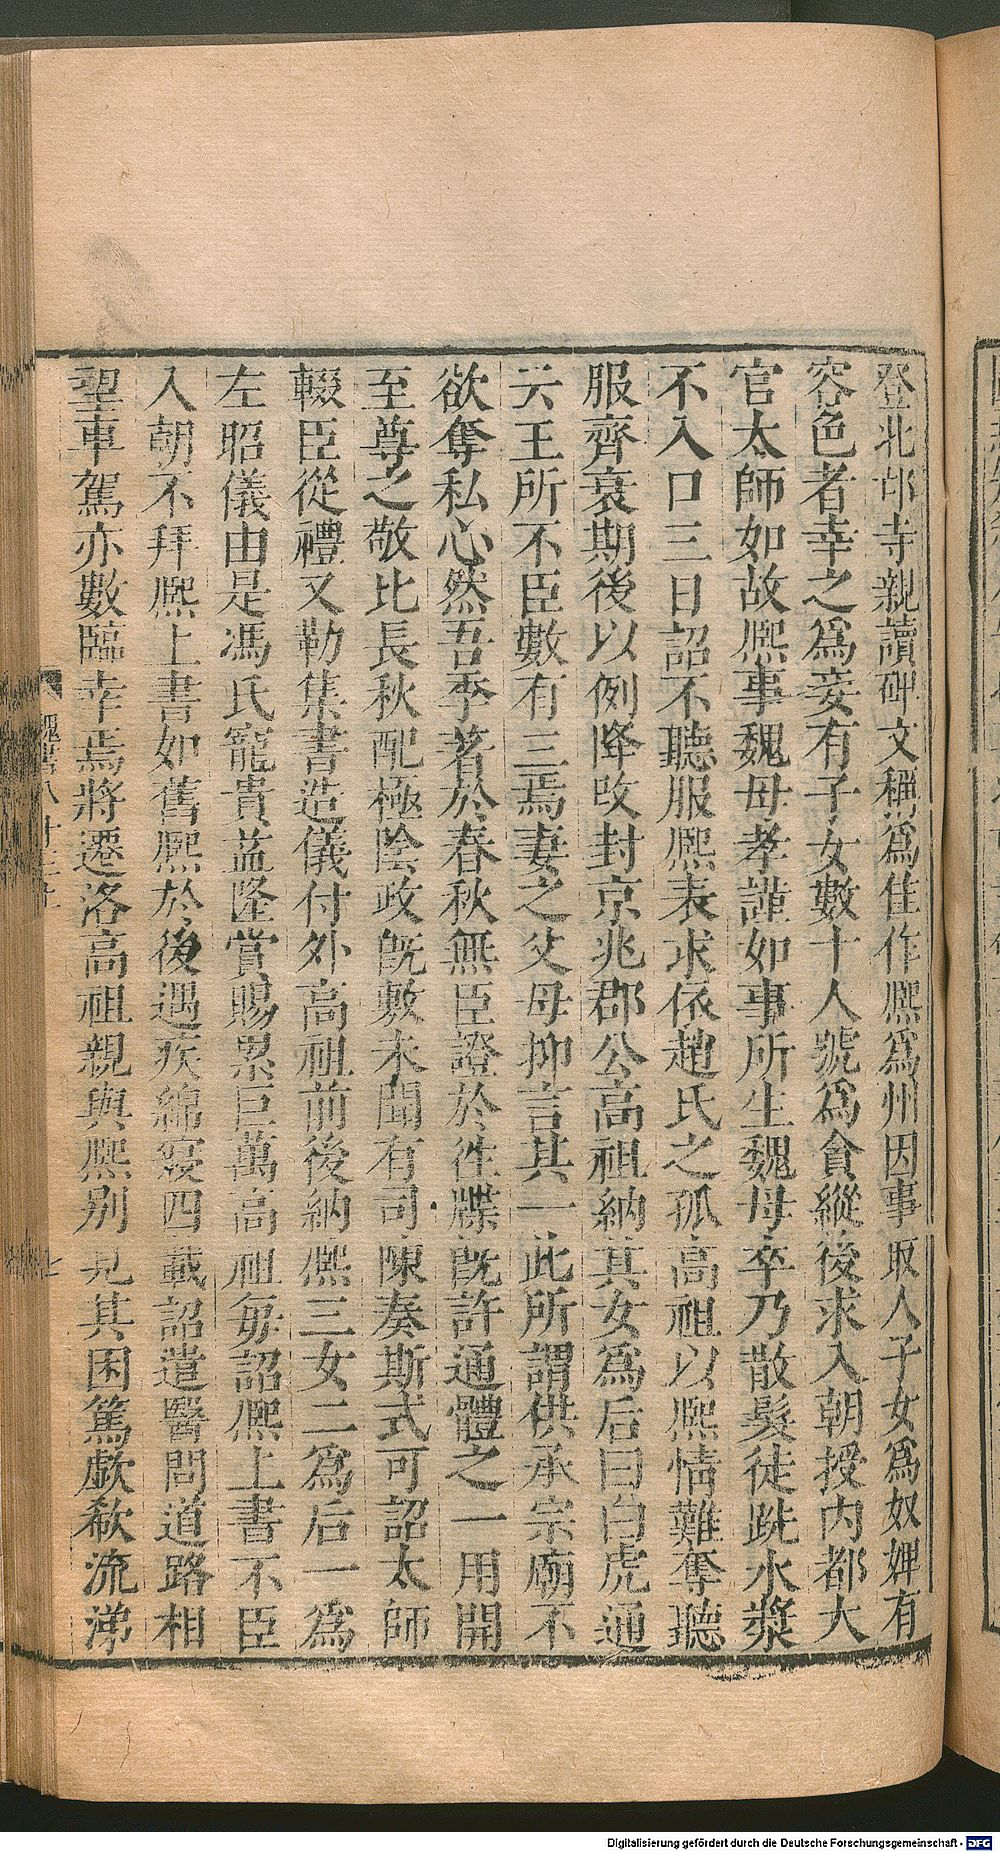 登北邙寺親讀碑文稱爲佳作熈爲州因事取人子女爲奴婢有
容色者幸之爲妾有子女數十人號爲貪縱後求入朝授内都大
官太師如故熈事魏母孝謹如事所生魏母卒乃散髮徒跣水漿
不入口三日詔不聽服熈表求依趙氏之孤高祖以熈情難奪聽
服齊衰期後以例降改封京兆郡公高祖納其女爲后曰白虎通
云王所不臣數有三焉妻之父母抑言其一此所謂供承宗廟不
欲奪私心然吾季著於春秋無臣證於徃牒旣許通體之一用開
至尊之敬比長秋配極陰政旣敷未聞有司陳奏斯式可詔太師
輟臣從禮又勅集書造儀付外高祖前後納熈三女二爲后一爲
左昭儀由是馮氏寵貴益隆賞賜累巨萬高祖毎詔熈上書不臣
入朝不拜熈上書如舊熈於後遇疾綿寢四載詔遣醫問道路相
望車駕亦數臨幸焉將遷洛高祖親與熈別見其困篤歔欷流涕
七
Digitalisierung gefördert durch die Deutsche Forschungsgemeinschaft - DFG